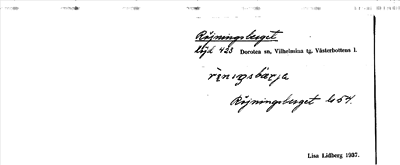 Röjningsberget
höjd 423 Dorotea sn, Vilhelmina tg, Västerbottens l.
Röjningsberget
Lisa Lidberg 1937.